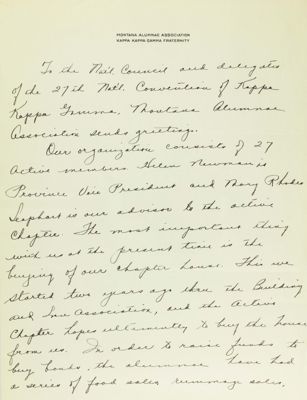 MONTANA ALUMNAE ASSOCIATION
KAPPA KAPPA GAMMA FRATERNITY
To the Nat'l Council and delegates
of the 27th Natl. Convention of Kappa
Kappa Gamma, Montana Alumnae
Association sends greeting.
Our organization consists of 27
Active members. Helen Newman is
Province Vice President and Mary Rhodes
Leaphart is our advisor to the active
Chapter. The most important thing
with us at the present time is the
buying of our chapter house. This we
started two years ago thru the Building
and Association, and the Active
Chapter hopes ultimately to buy the house
from us. In order to raise funds to
buy bonds, the alumnae have had
a series of food sales, rummage sales,